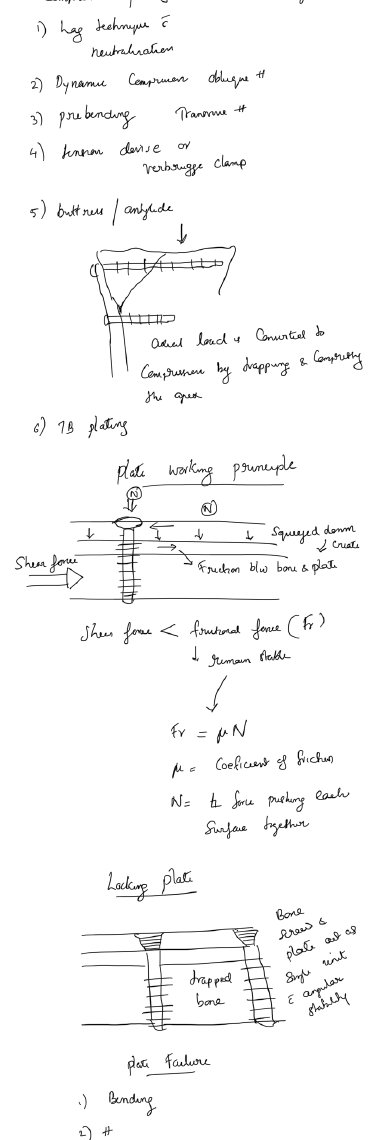 1) Lag technique c̄
neutralisation
2) Dynamic Compression oblique #
3) prebending Transverse #
4) tension devise or
verbrugge clamp
5) buttress / antiglide
axial load is Converted to
Compression by trapping & Compressing
the apex
6) TB plating
plate working principle
N
N
Squeezed down
create
Shear force
Friction b/w bone & plate
Shear force < frictional force (Fr)
↓ remain stable
Fr = μN
μ = Coeficient of friction
N = ⊥ force pushing each
Surface together
Locking plate
Bone
screw &
plate act as
Single unit
c̄ angular
stability
trapped
bone
plate Failure
1) Bending
2) #